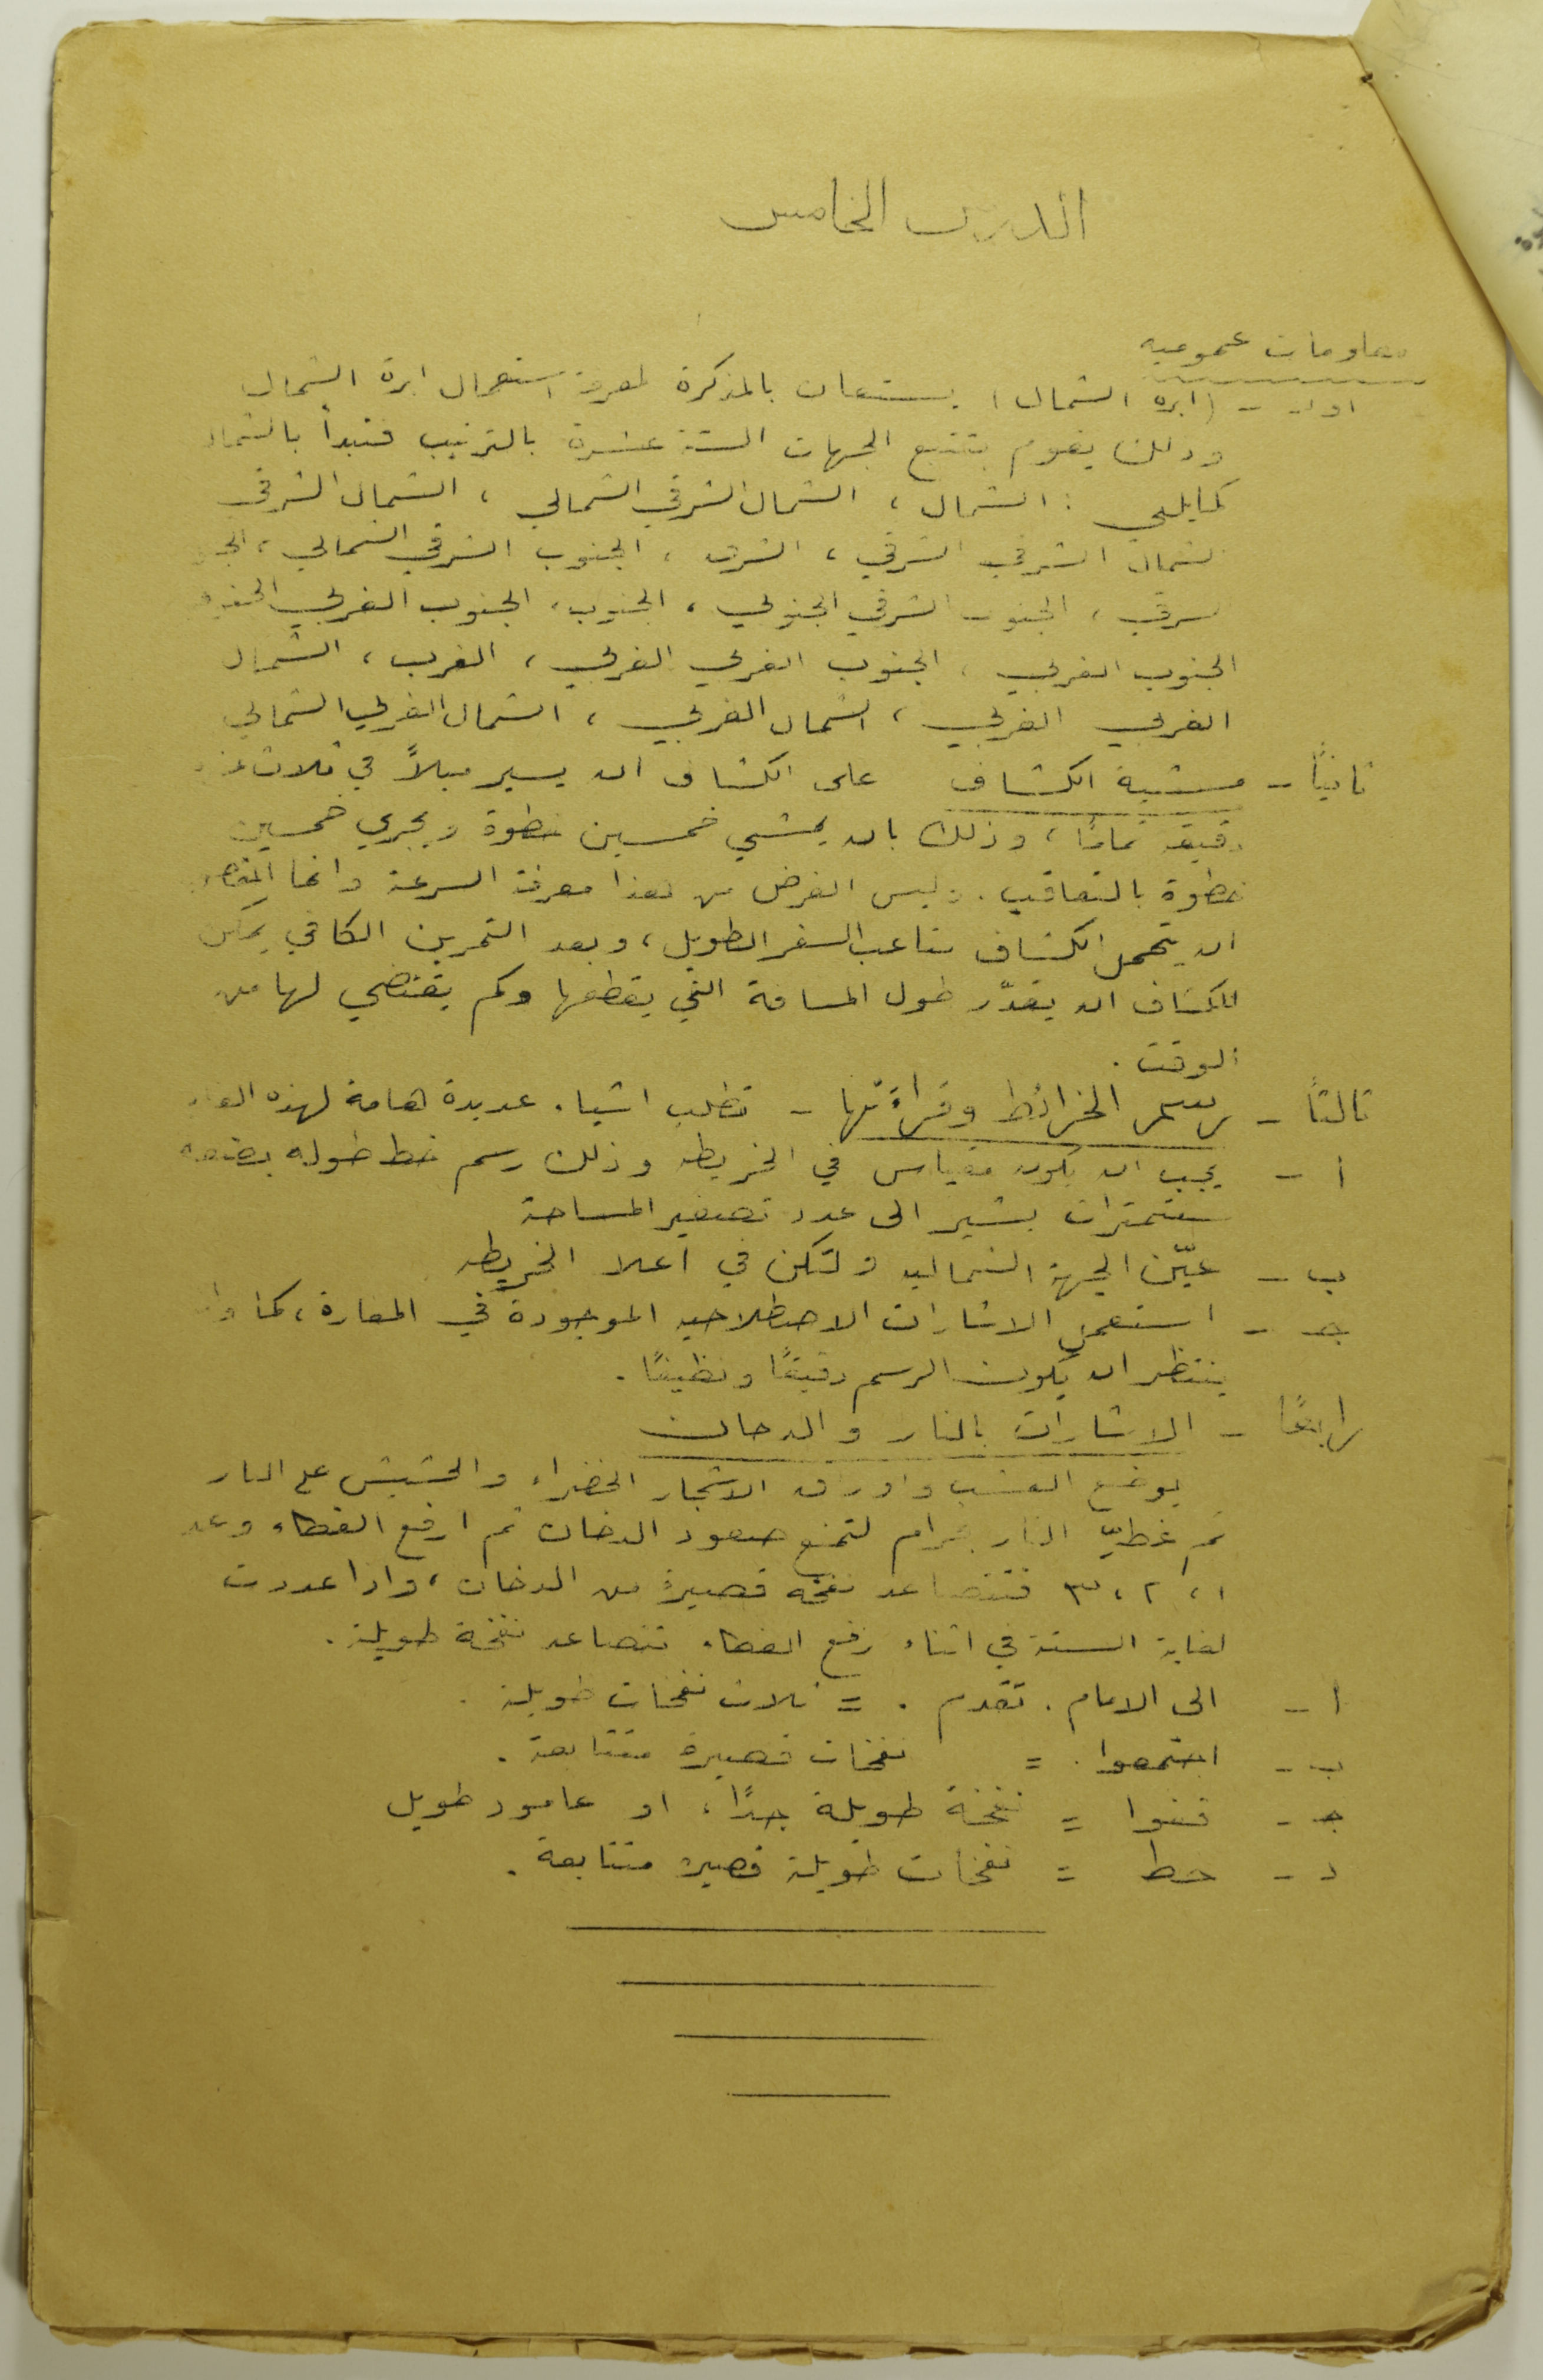 الدرس الخامس
معلومات عموميه
اولا - (ابرة الشمال) يستعان بالمذكرة لمعرفة استعمال ابرة الشمال
وذلك يقوم بتتبع الجهات الستة عشرة بالترتيب فتبدأ بالشمال
كمايلي : الشمال ، الشمال الشرقي الشمالي ، الشمال الشرقي
الشمال الشرقي الشرقي ، الشرق ، الجنوب الشرقي الشمالي ،
شرقي ، الجنوب الشرقي الجنوبي ، الجنوب ، الجنوب الغربي الجنوبي
الجنوب الغربي ، الجنوب الغربي الغربي ، الغرب ، الشمال
الغربي الغربي ، الشمال الغربي ، الشمال الغربي الشمالي
ثانياً - مشية الكشاف على الكشاف ان يسير ميلاً في ثلاث عشرة
دقيقة تماماً ، وذلك بان يمشي خمسين خطوة ويجري خمسين
خطوة بالتعاقب . وليس الغرض من هذا معرفة السرعة وانما
ان يتحمل الكشاف متاعب السفر الطويل ، وبعد التمرين الكافي يمكن
للكشاف ان يقدّر طول المسافة التي يقطعها وكم يقتضي لها من
الوقت .
ثالثاً - رسم الخرائط وقراءتها - تطلب اشياء عديدة هامة لهذه
أ - يجب ان يكون مقياس في الخريطه وذلك رسم خط طوله بضعة
سنتمترات يشير الى عدد تصغير المساحة
ب - عيّن الجهة الشماليه ولتكن في اعلا الخريطه
جـ - استعمل الاشارات الاصطلاحيه الموجودة في المغارة ، كما وانه
ينتظر ان يكون الرسم دقيقاً ونظيفاً .
رابعاً - الاشارات بالنار والدخان
يوضع العشب واوراق الاشجار الخضراء والحشيش على النار
ثم غطيّ النار بحرام لتمنع صعود الدخان ثم ارفع الغطاء وعد
١ ، ٢ ، ٣ فتتصاعد نفخة قصيرة من الدخان ، واذا عددت
لغاية الستة في اثناء رفع الغطاء تتصاعد نفخة طويلة .
أ - الى الامام . تقدم . = ثلاث نفخات طويلة .
ب - اجتمعوا . = نفخات قصيرة متتابعة .
جـ - قفوا = نفخة طويلة جداً ، او عامود طويل
د - خطر = نفخات طويلة قصيرة متتابعة .